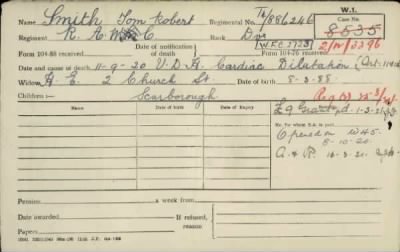 W.1.
Name Smith Tom Robert Regimental No. T4/886246 Case No.
8535
Regiment R. A. S. C. Rank Dvr 2/M/5396
Form 104-88 received Date of notification of death W.F.C. 2/23 Form 104-76 received
Date and cause of death 11-9-20 V.D.H. Cardiac Dilatation
Widow H. E. 2 Church St. Date of birth 8-3-88.
Children:— Scarborough
Name Date of Birth Date of Expiry
Grant pd. 1-3-21
No. for whom S.A. is paid
Opened on W45.
8-10-20.
A. & R. 16-3-21.
Pensions a week from
Date awarded If refused, reason
Papers to